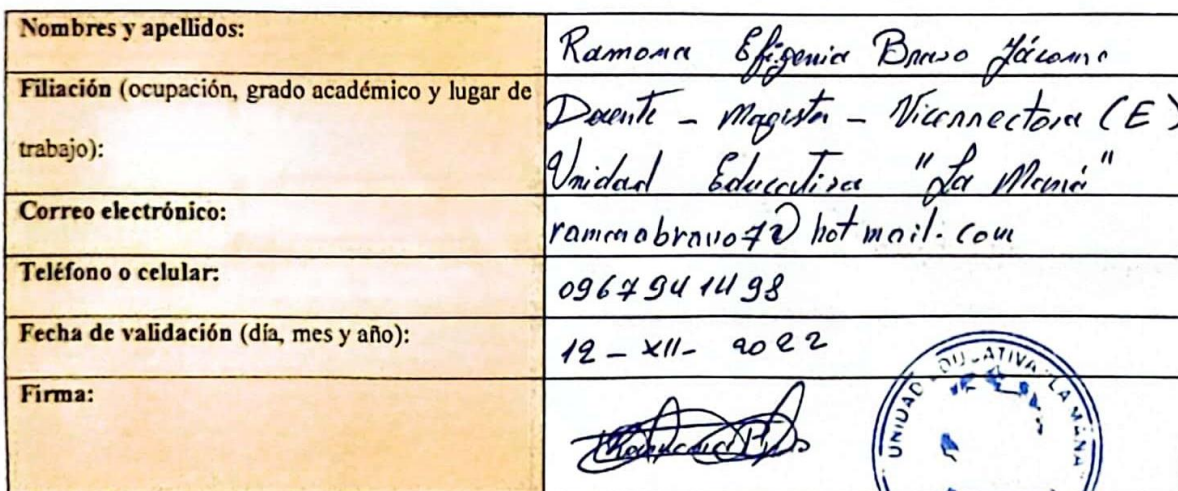 Nombres y apellidos:
Ramona Efigenia Bravo Jácome
Filiación (ocupación, grado académico y lugar de
trabajo):
Docente - Magister - Vicerrectora (E)
Unidad Educativa "La Maná"
Correo electrónico:
ramonabravo7@hotmail.com
Teléfono o celular:
0967941498
Fecha de validación (día, mes y año):
12-XII-2022
Firma:
UNIDAD EDUCATIVA "LA MANÁ